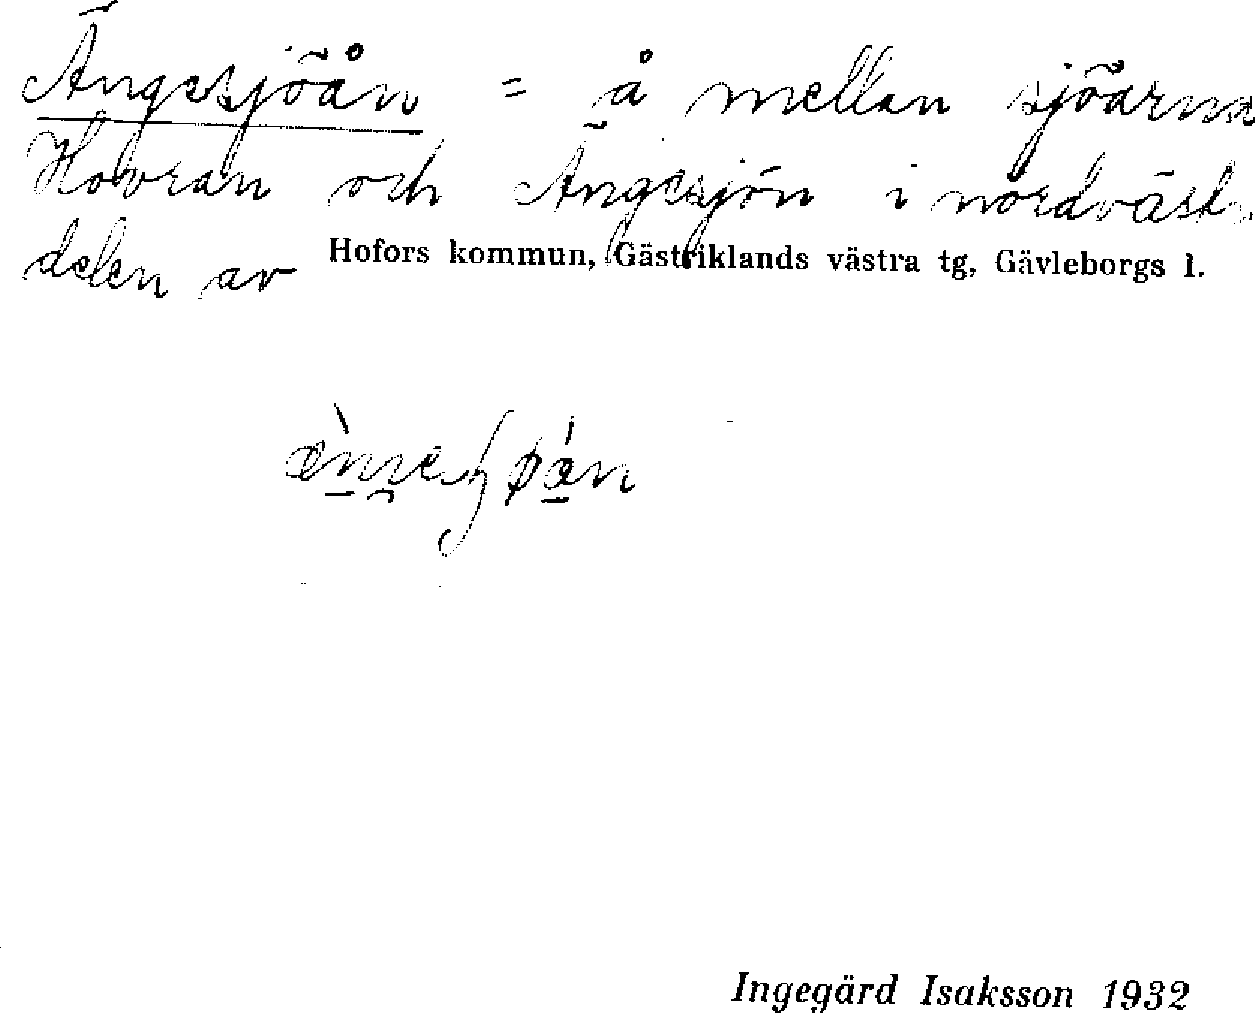 Ängesjöån = å mellan sjöarna
Hovran och Ängesjön i nordväst
delen av Hofors kommun, Gästriklands västra tg, Gävleborgs l.
Ingegärd Isaksson 1932